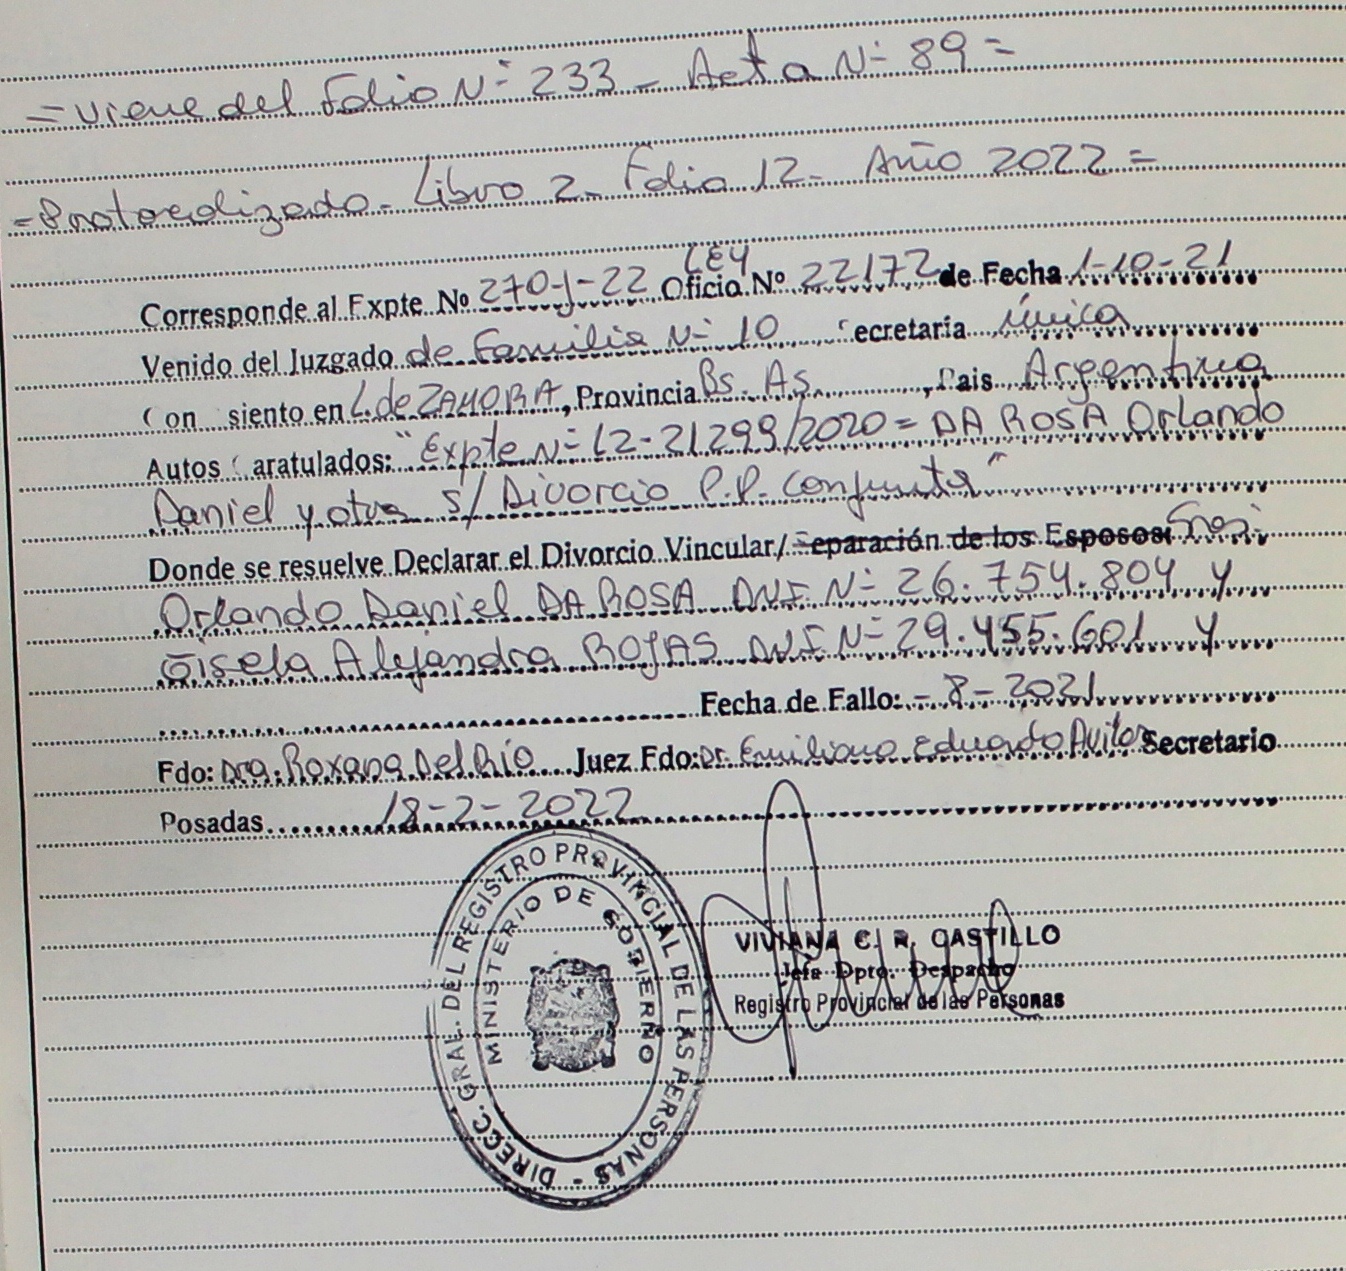 = Viene del Folio Nº 233 - Acta Nº 89 =
= Protocolizado - Libro 2 - Folio 12 - Año 2022 =
LEY
Corresponde al Expte Nº 270-J-22 Oficio Nº 22172 de Fecha 1-10-21
Venido del Juzgado de Familia Nº 10 Secretaria única
Con siento en L. de ZAMORA, Provincia Bs. As. , Pais Argentina
Autos Caratulados: "Expte Nº LZ-21299/2020 = DA ROSA Orlando
Daniel y otra S/ Divorcio P.P. Conjunta"
Donde se resuelve Declarar el Divorcio Vincular/ Separación de los Esposos: Sres.
Orlando Daniel DA ROSA DNI Nº 26.754.804 y
Gisela Alejandra ROJAS DNI Nº 29.455.601 y
Fecha de Fallo: - 8 - 2021
Fdo: Dra. Roxana Del Río Juez Fdo: Dr. Emiliano Eduardo Secretario
Posadas 18-2-2022
DIRECC. GRAL. DEL REGISTRO PROVINCIAL DE LAS PERSONAS -
MINISTERIO DE GOBIERNO
VIVIANA C. R. CASTILLO
Jefa Dpto. Despacho
Registro Provincial de las Personas